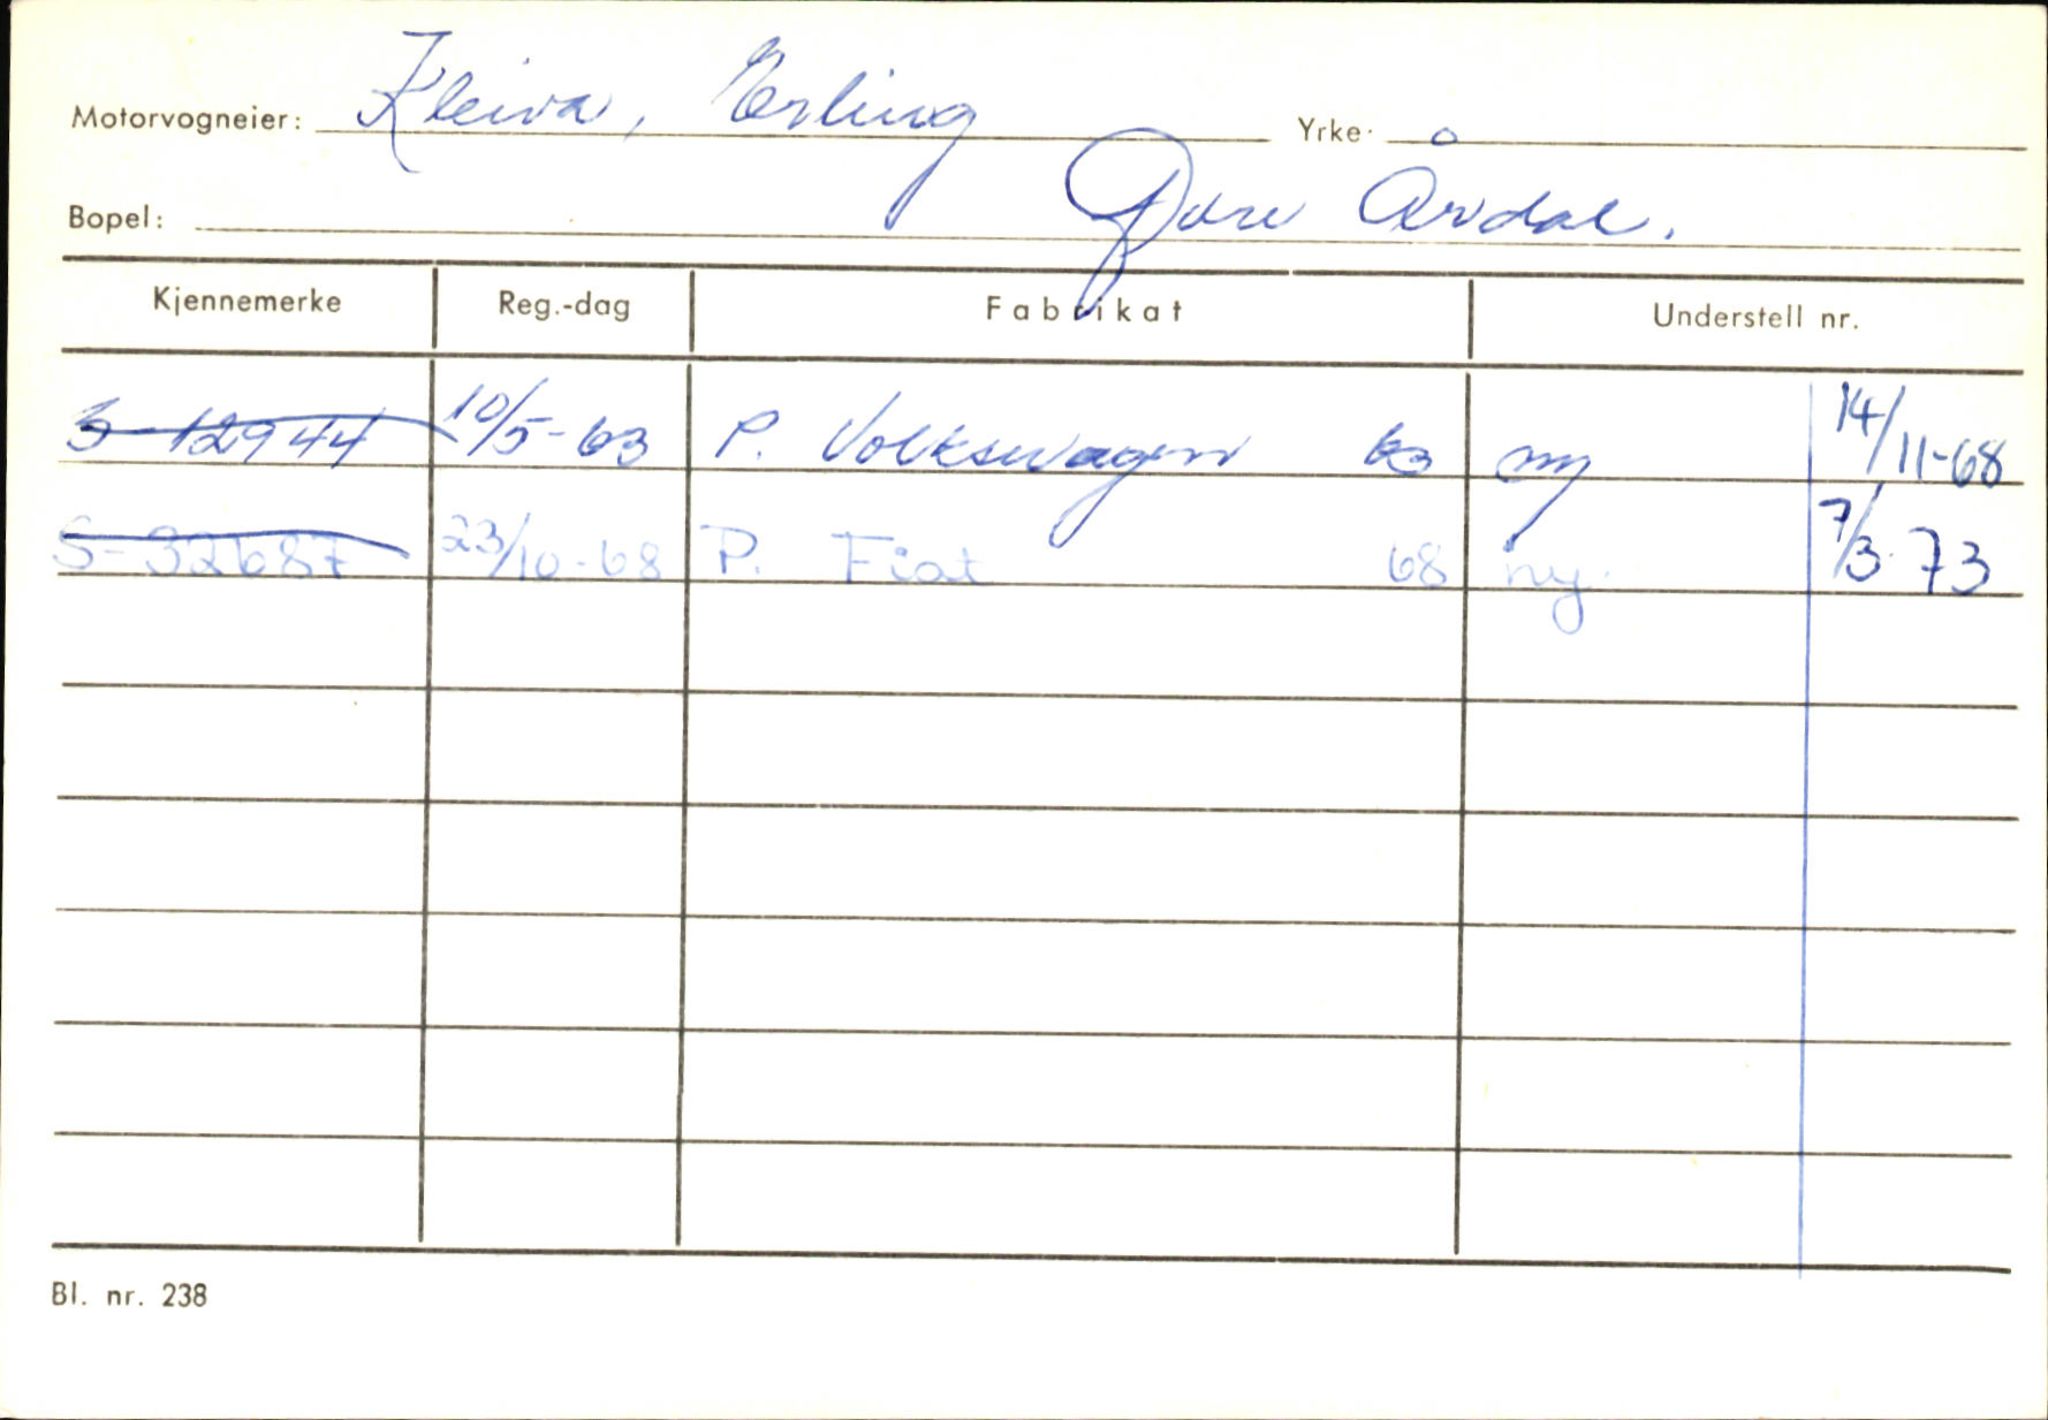 Motorvogneier: Kleiva, Erling Yrke:
Bopel: Øvre Årdal.
Kjennemerke Reg.-dag Fabrikat Understell nr.
S-12944 10/5-63 P. Volkswagen 63 ny 14/11-68
S-32687 23/10-68 P. Fiat 68 ny. 7/3-73
Bl. nr. 238